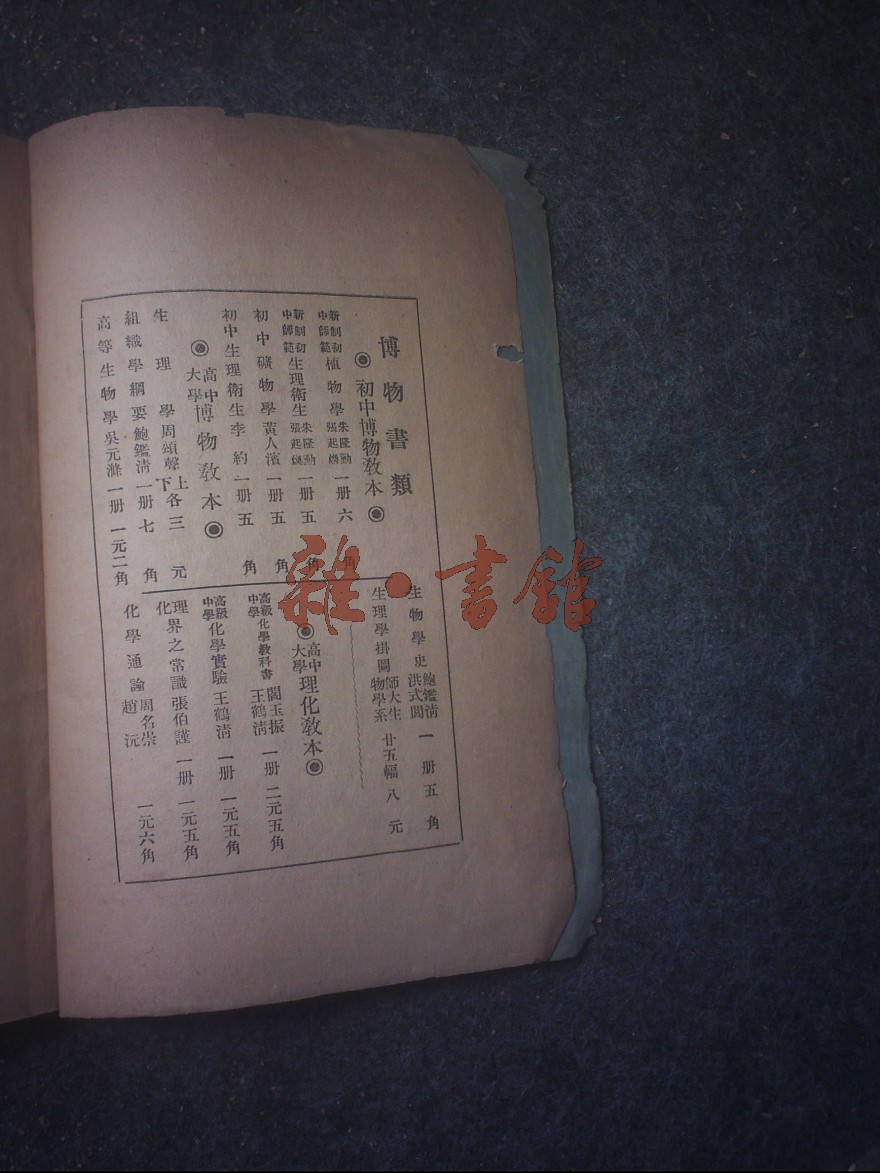 博物書類
◉初中博物教本◉
新制初中師範植物學 朱隆勳 張起煥 一册 六角
新制初中師範生理衛生 朱隆勳 張起煥 一册 五角
初中礦物學 黃人濱 一册 五角
初中生理衛生 李約 一册 五角
◉高中大學博物教本◉
生理學 周頌聲 上下各三元
組織學綱要 鮑鑑清 一册 七角
高等生物學 吳元滌 一册 一元二角
生物學史 鮑鑑清 洪式閭 一册 五角
生理學掛圖 師大生物學系 廿五幅 八元
◉高中大學理化教本◉
高級中學化學教科書 閻玉振 王鶴清 一册 二元五角
高級中學化學實驗 王鶴清 一册 一元五角
理化界之常識 張伯謹 一册 一元五角
化學通論 周名崇 趙沅 一元六角
雜·書館